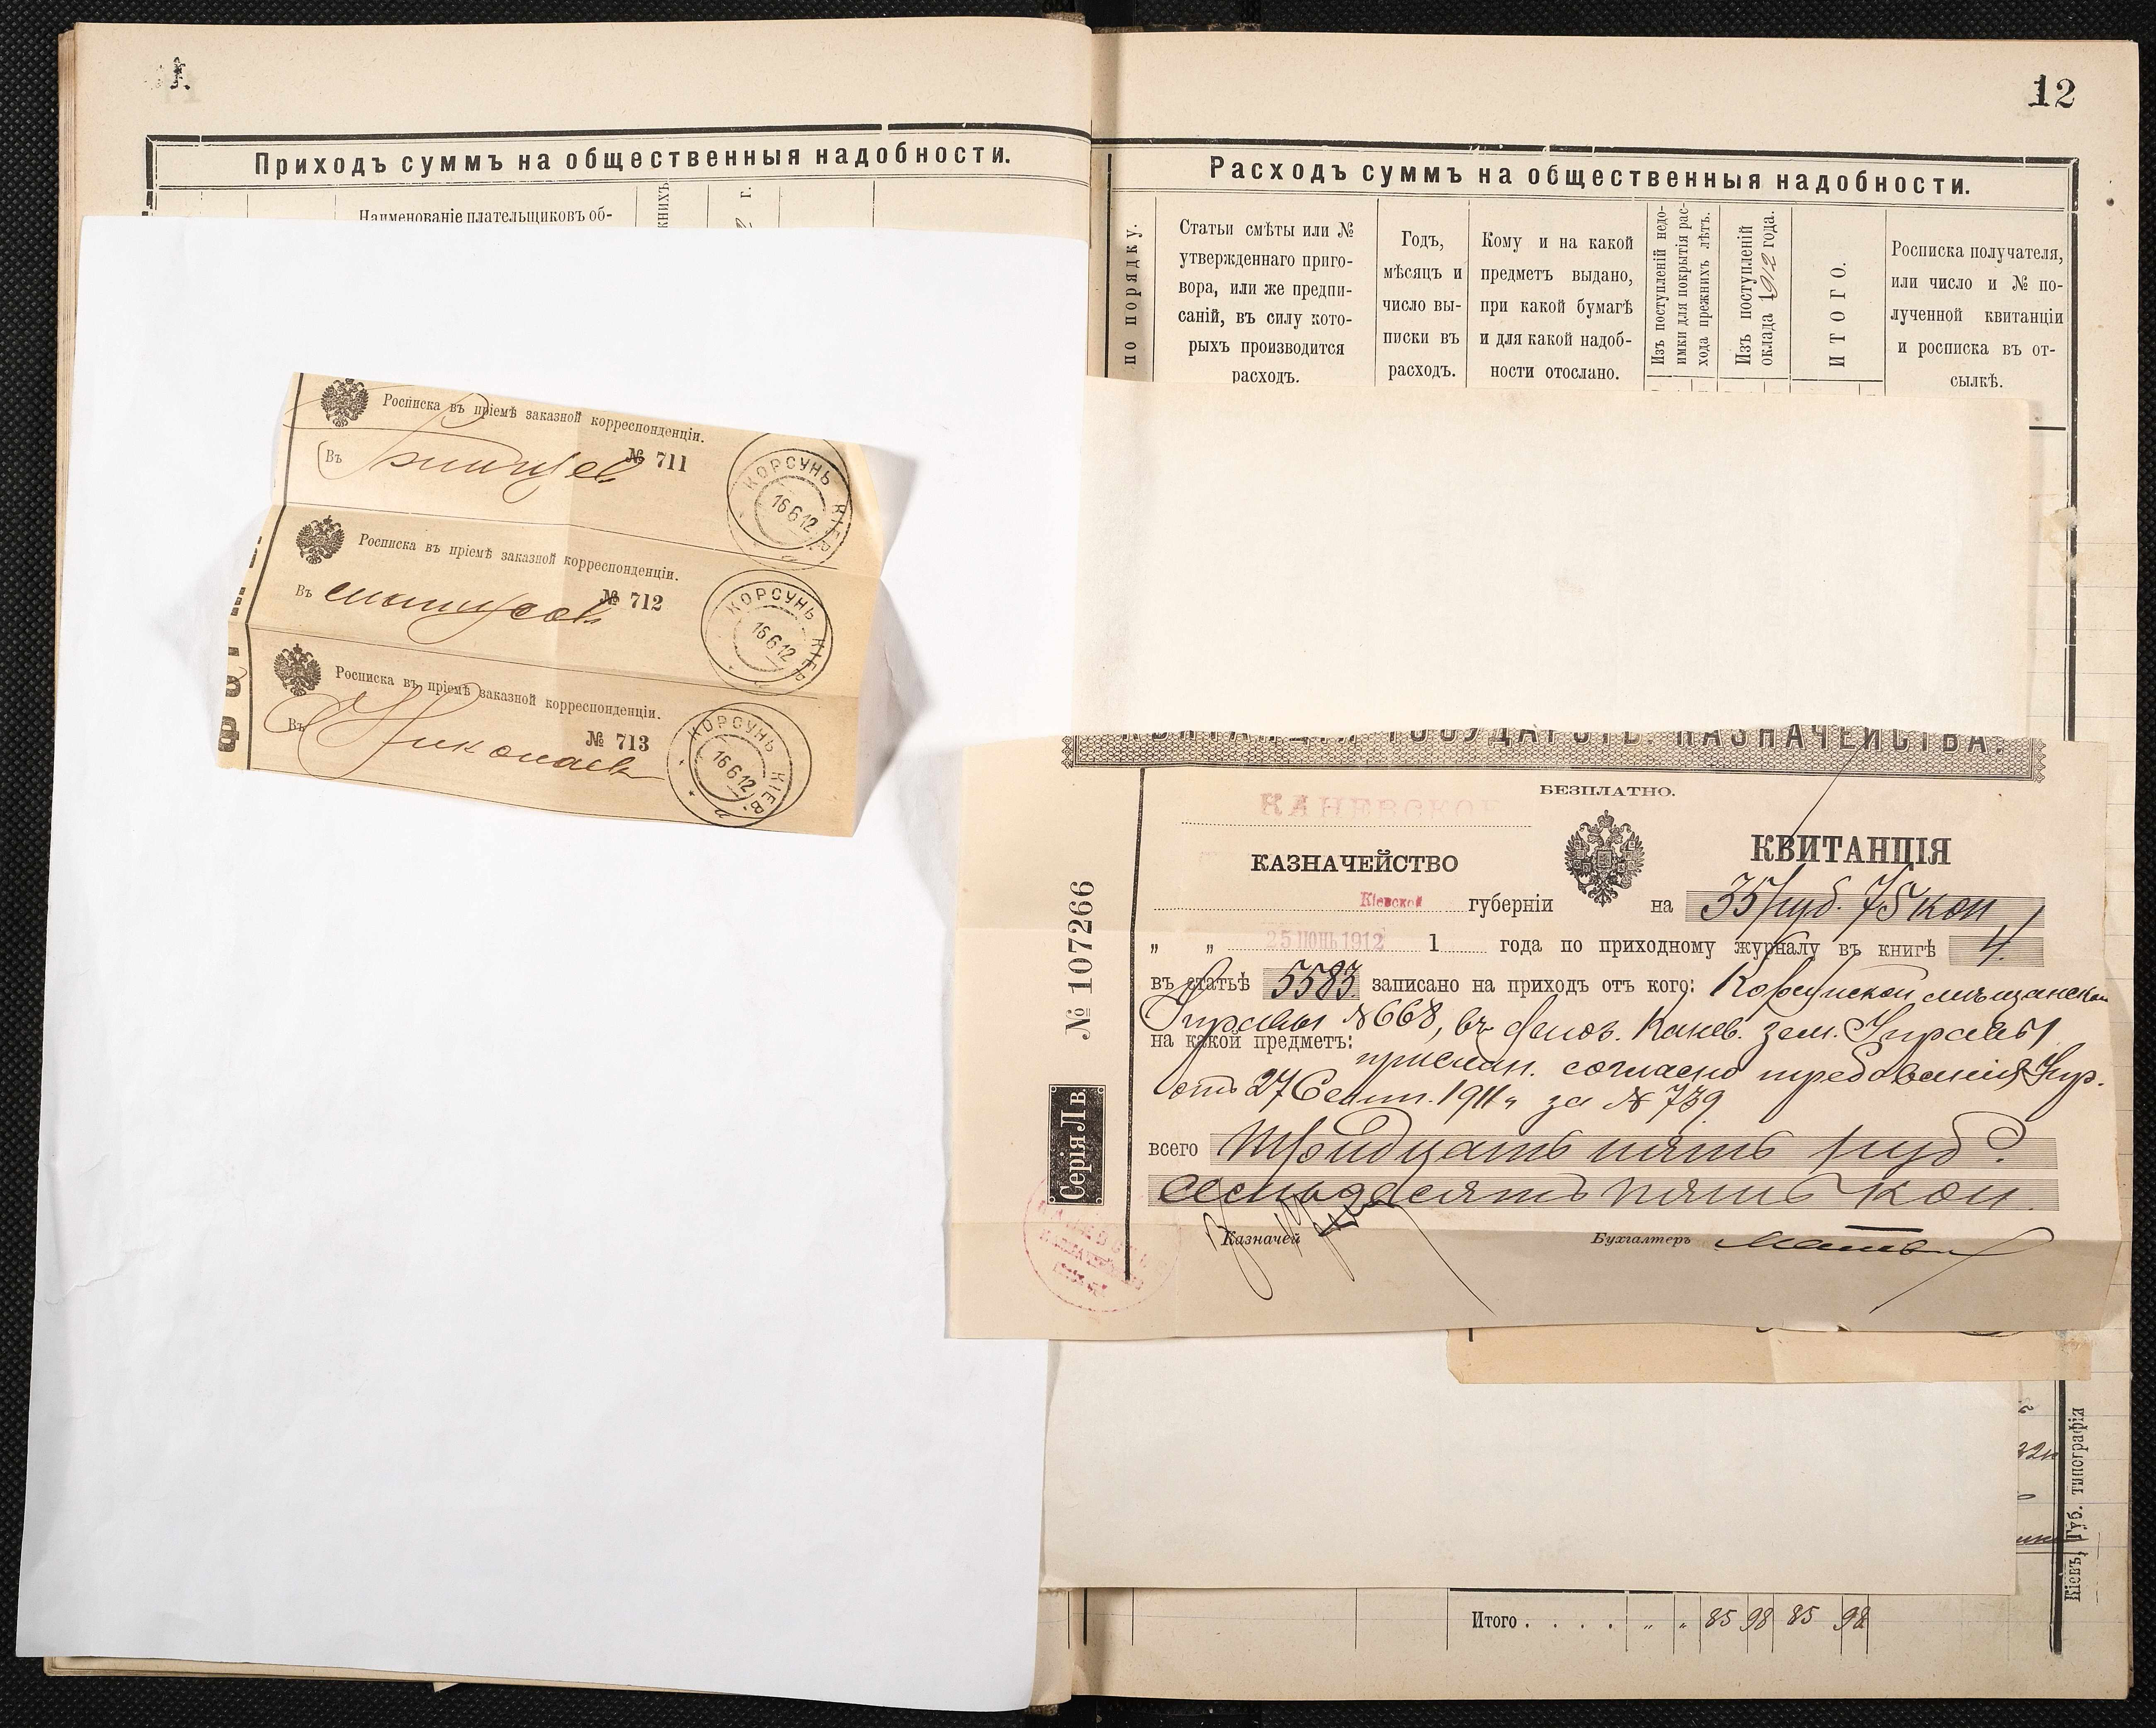 12
Приходъ суммъ на общественныя надобности.
Наименованіе плательщиковъ об-
Расходъ суммъ на общественныя надобности.
по порядку.
Статьи смѣты или №
утвержденнаго приго-
вора, или же предпи-
саній, въ силу кото-
рыхъ производится
расходъ.
Годъ,
мѣсяцъ и
число вы-
писки въ
расходъ.
Кому и на какой
предметъ выдано,
при какой бумагѣ
и для какой надоб-
ности отослано.
Изъ поступленій недо-
имки для покрытія рас-
хода прежнихъ лѣтъ.
Изъ поступленій
оклада 1912 года.
ИТОГО.
Росписка получателя,
или число и № по-
лученной квитанціи
и росписка въ от-
сылкѣ.
Росписка въ пріемѣ заказной корреспонденціи.
Въ № 711
КОРСУНЬ КІЕВ.
16 6 12
Росписка въ пріемѣ заказной корреспонденціи.
Въ № 712
КОРСУНЬ КІЕВ.
16 6 12
Росписка въ пріемѣ заказной корреспонденціи.
Въ Николаев № 713
КОРСУНЬ КІЕВ.
16 6 12
КВИТАНЦІЯ ГОСУДАРСТВ. КАЗНАЧЕЙСТВА.
БЕЗПЛАТНО.
КАНЕВСКОЕ
КАЗНАЧЕЙСТВО
КВИТАНЦІЯ
Кіевской губерніи на 35 руб. 75 коп
„ „ 25 ІЮНЬ 1912 1 года по приходному журналу въ книгѣ 4.
въ статьѣ 5583 записано на приходъ отъ кого: Корсунской мѣщанской
Управы № 668, въ депоз. Канев. зем. Управы
на какой предметъ:
прислан. согласно требованія Упр.
отъ 27 Сент. 1911 „ за № 739
всего Тридцать пять руб.
семьдесятъ пять коп.
Казначей Бухгалтеръ
№ 107266
Серія Лв
Итого . . . . „ „ 85 98 85 98
Кіевъ, Губ. типографія